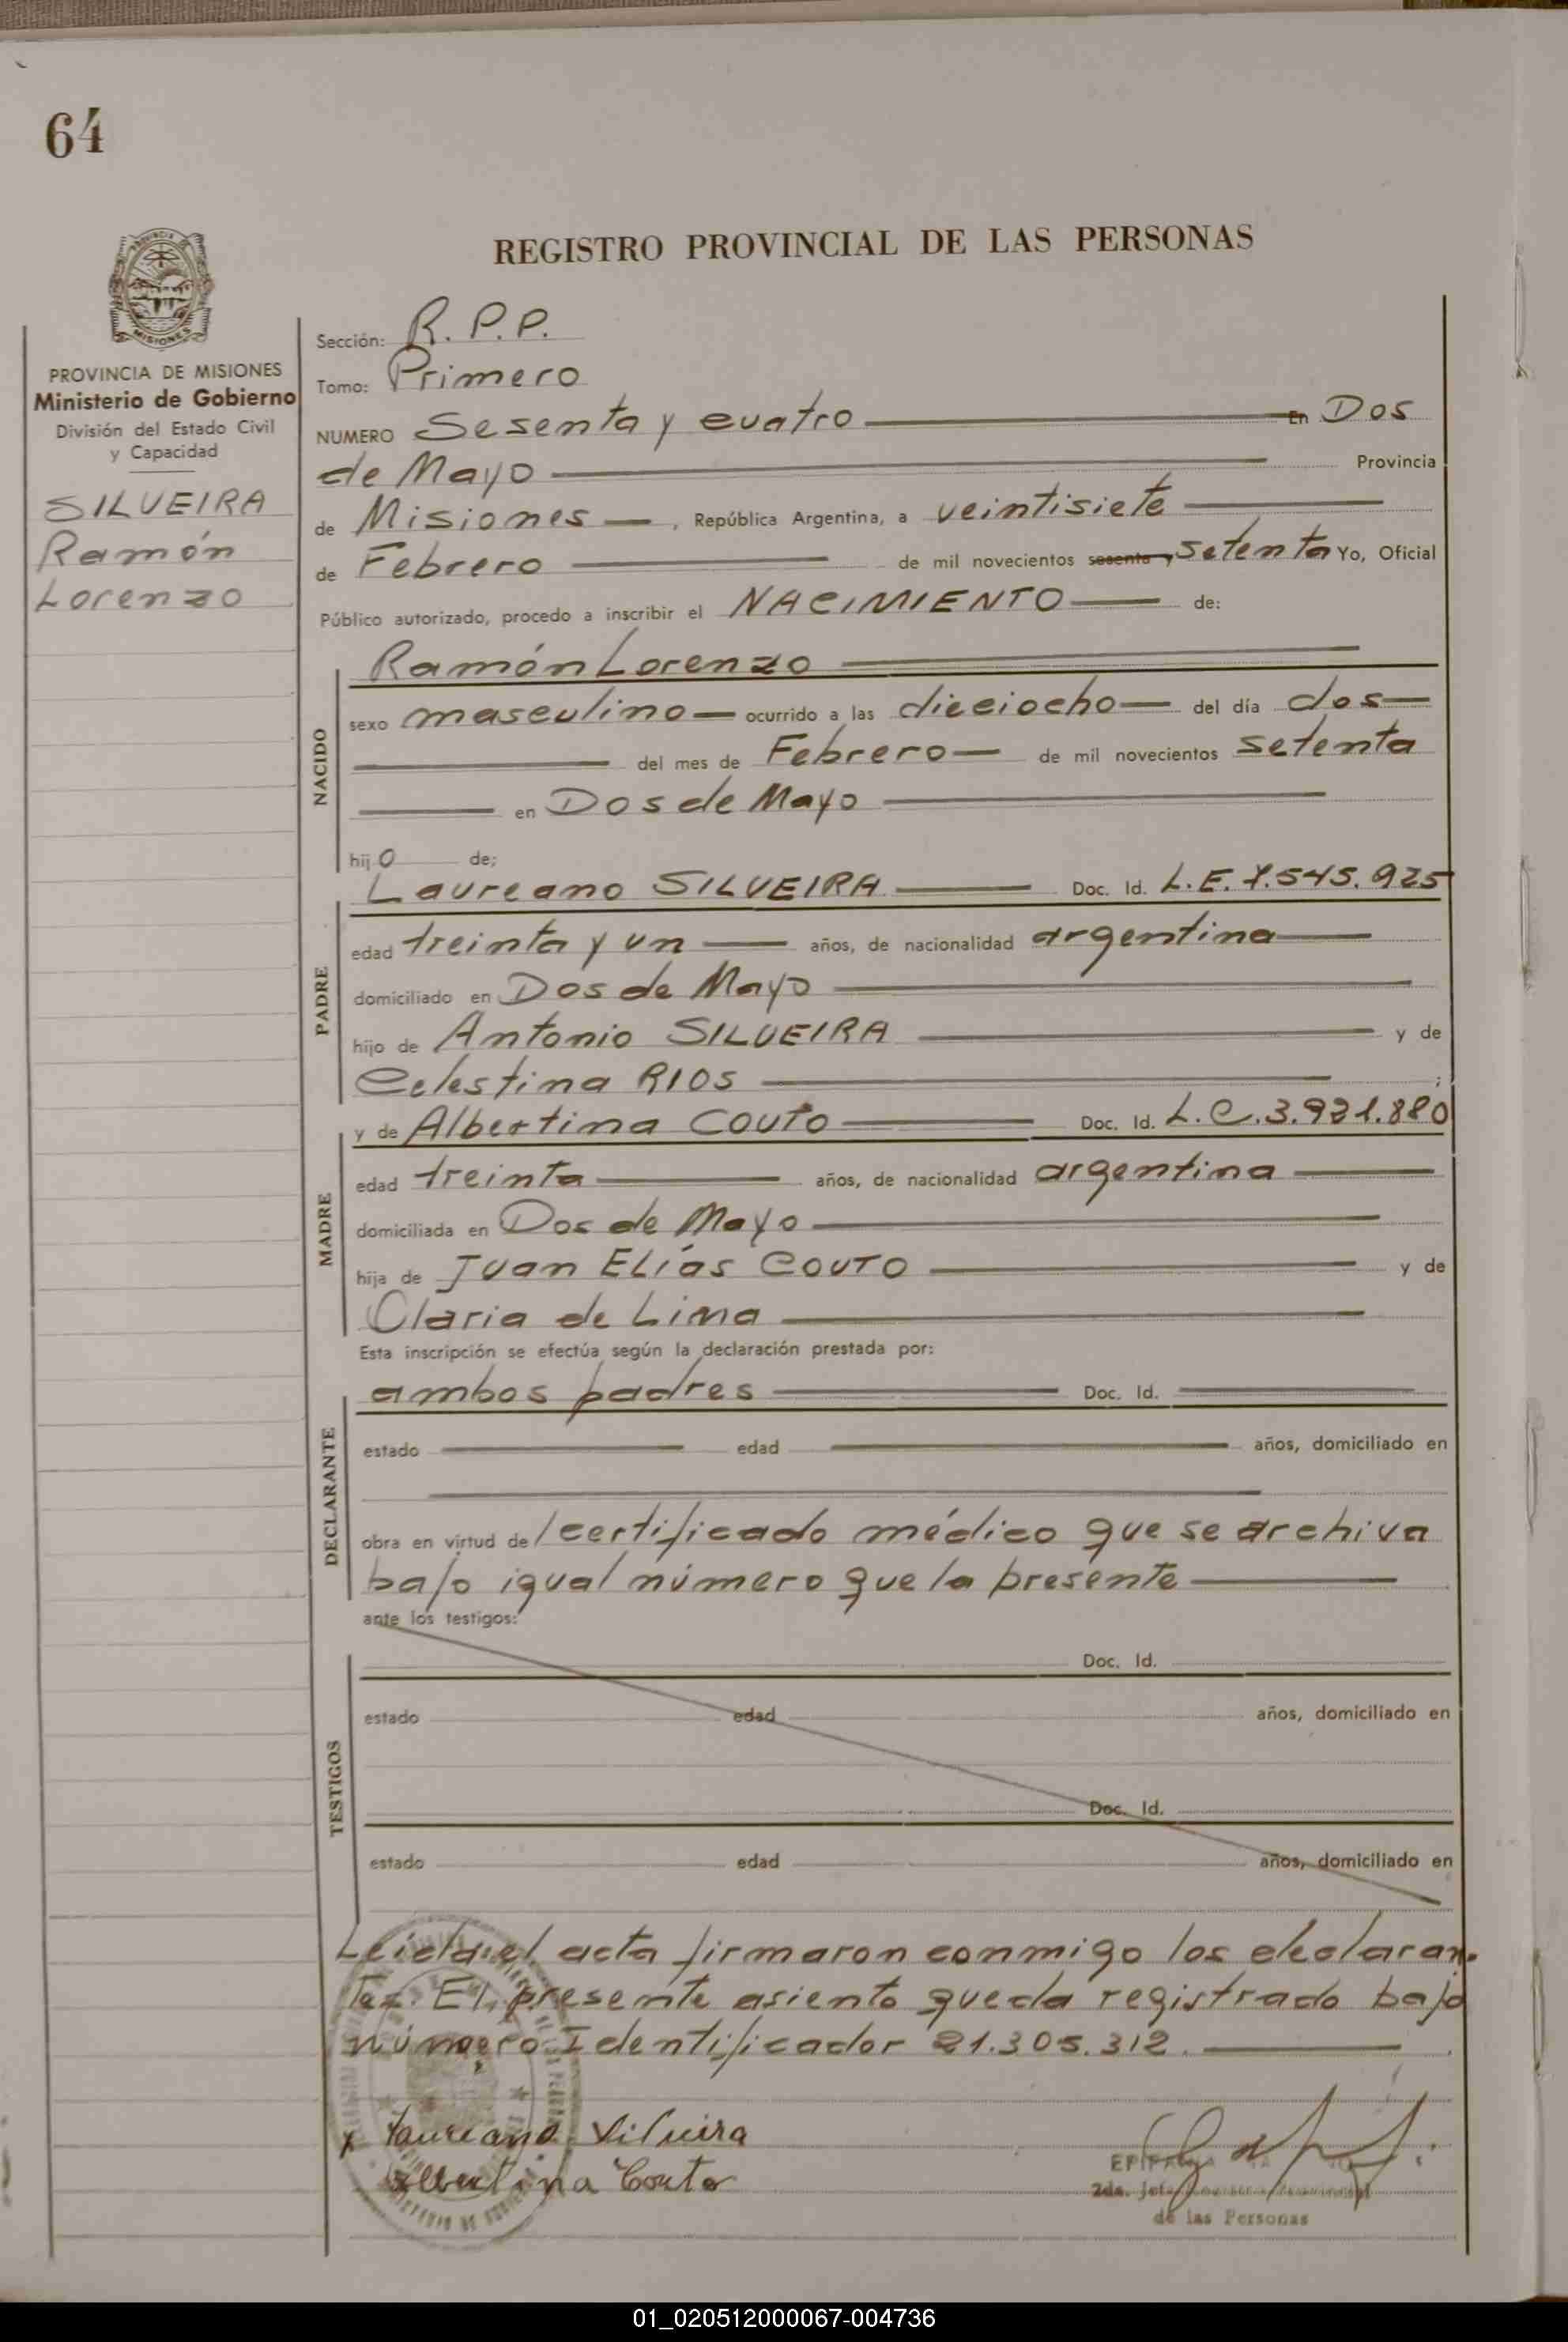 64
REGISTRO PROVINCIAL DE LAS PERSONAS
PROVINCIA DE MISIONES
Ministerio de Gobierno
División del Estado Civil
y Capacidad
SILVEIRA
Ramón
Lorenzo
Sección: R. P. P.
Tomo: Primero
NUMERO Sesenta y cuatro En Dos
de Mayo Provincia
de Misiones, República Argentina, a veintisiete
de Febrero de mil novecientos sesenta y setenta Yo, Oficial
Público autorizado, procedo a inscribir el NACIMIENTO de:
NACIDO
Ramón Lorenzo
sexo masculino ocurrido a las dieciocho del día dos
del mes de Febrero de mil novecientos setenta
en Dos de Mayo
hijo de;
PADRE
Laureano SILVEIRA Doc. Id. L.E. 7.545.925
edad treinta y un años, de nacionalidad argentina
domiciliado en Dos de Mayo
hijo de Antonio SILVEIRA y de
Celestina RIOS ;
MADRE
y de Albertina COUTO Doc. Id. L.C. 3.921.880
edad treinta años, de nacionalidad argentina
domiciliada en Dos de Mayo
hija de Juan ELías COUTO y de
Claria de Lima
Esta inscripción se efectúa según la declaración prestada por:
DECLARANTE
ambos padres Doc. Id.
estado edad años, domiciliado en
obra en virtud de l certificado médico que se archiva
bajo igual número que la presente
ante los testigos:
TESTIGOS
Doc. Id.
estado edad años, domiciliado en
Doc. Id.
estado edad años, domiciliado en
Leída el acta firmaron conmigo los declaran-
tes. El presente asiento queda registrado bajo
número Identificador 21.305.312.
x Laureano Silveira
Albertina Couto
2da. Jefa
de las Personas
01_020512000067-004736